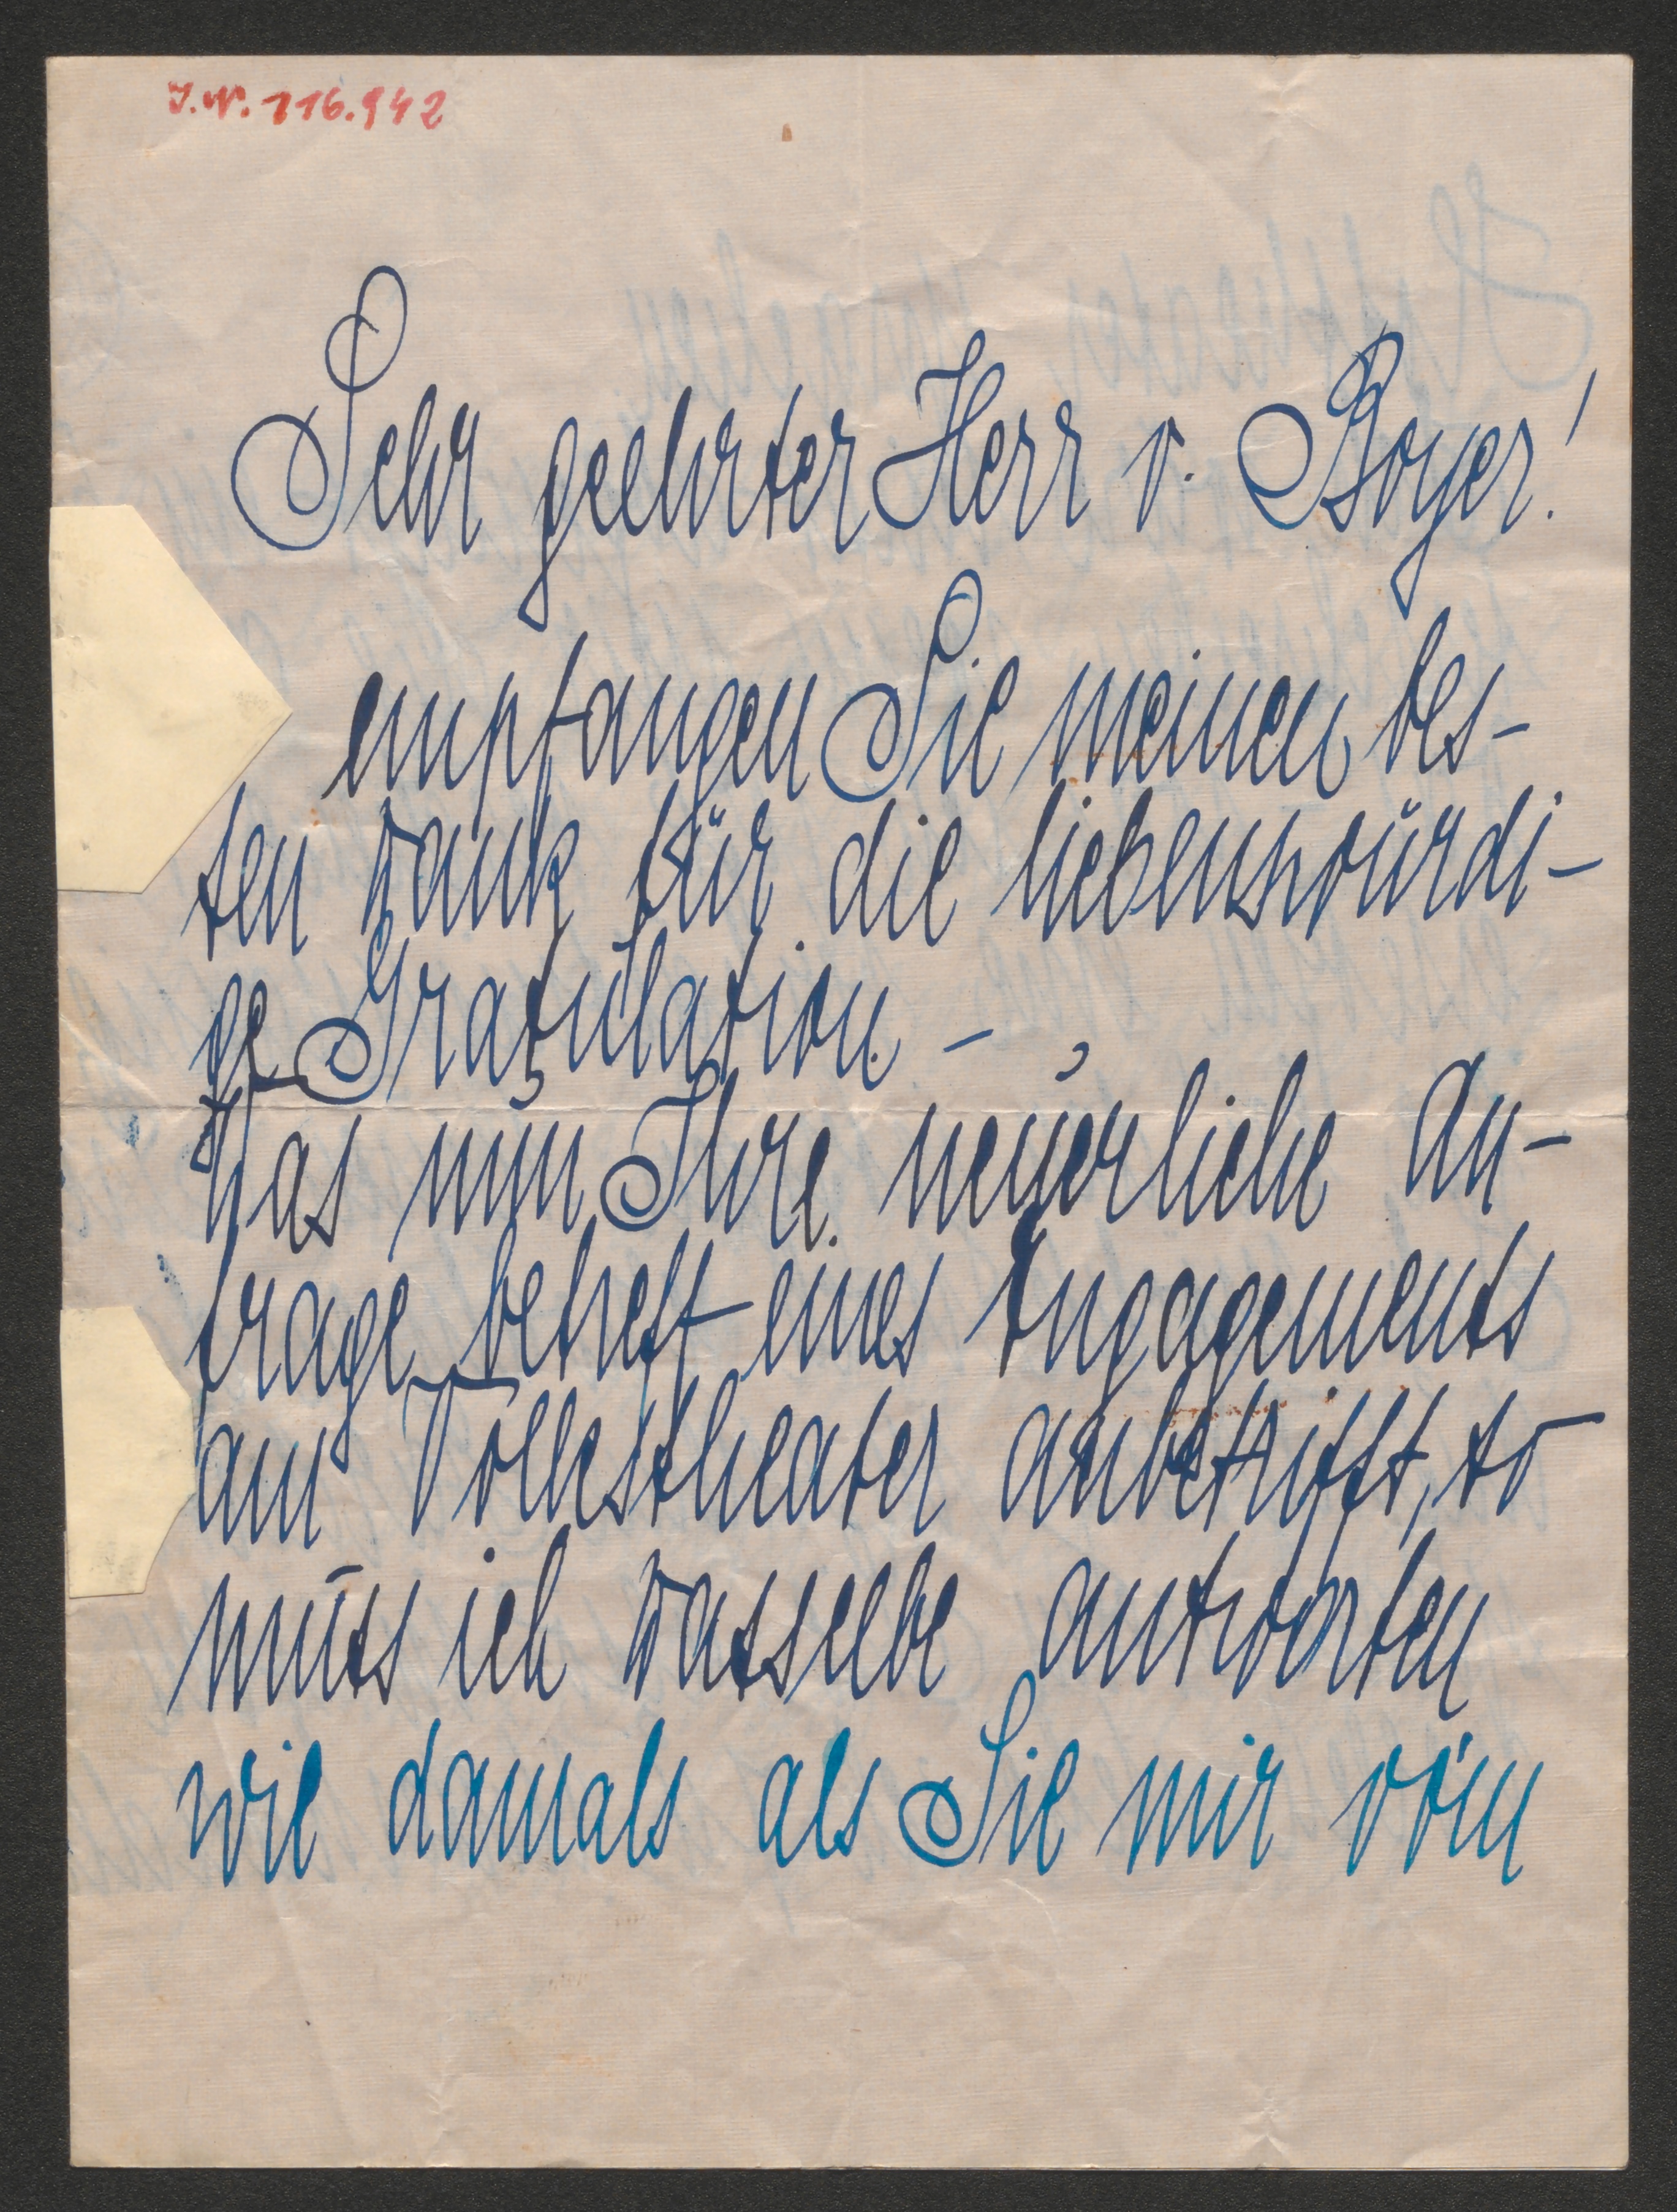 I.N. 116.942
Sehr geehrter Herr v. Boyer!
empfangen Sie meinen bes-
ten Dank für die liebenswürdi-
ge Gratulation. –
Was nun Ihre neuerliche An-
frage betreff eines Engagements
am Volkstheater anbetrifft, so
muss ich dasselbe antworten
wie damals als Sie mir vom